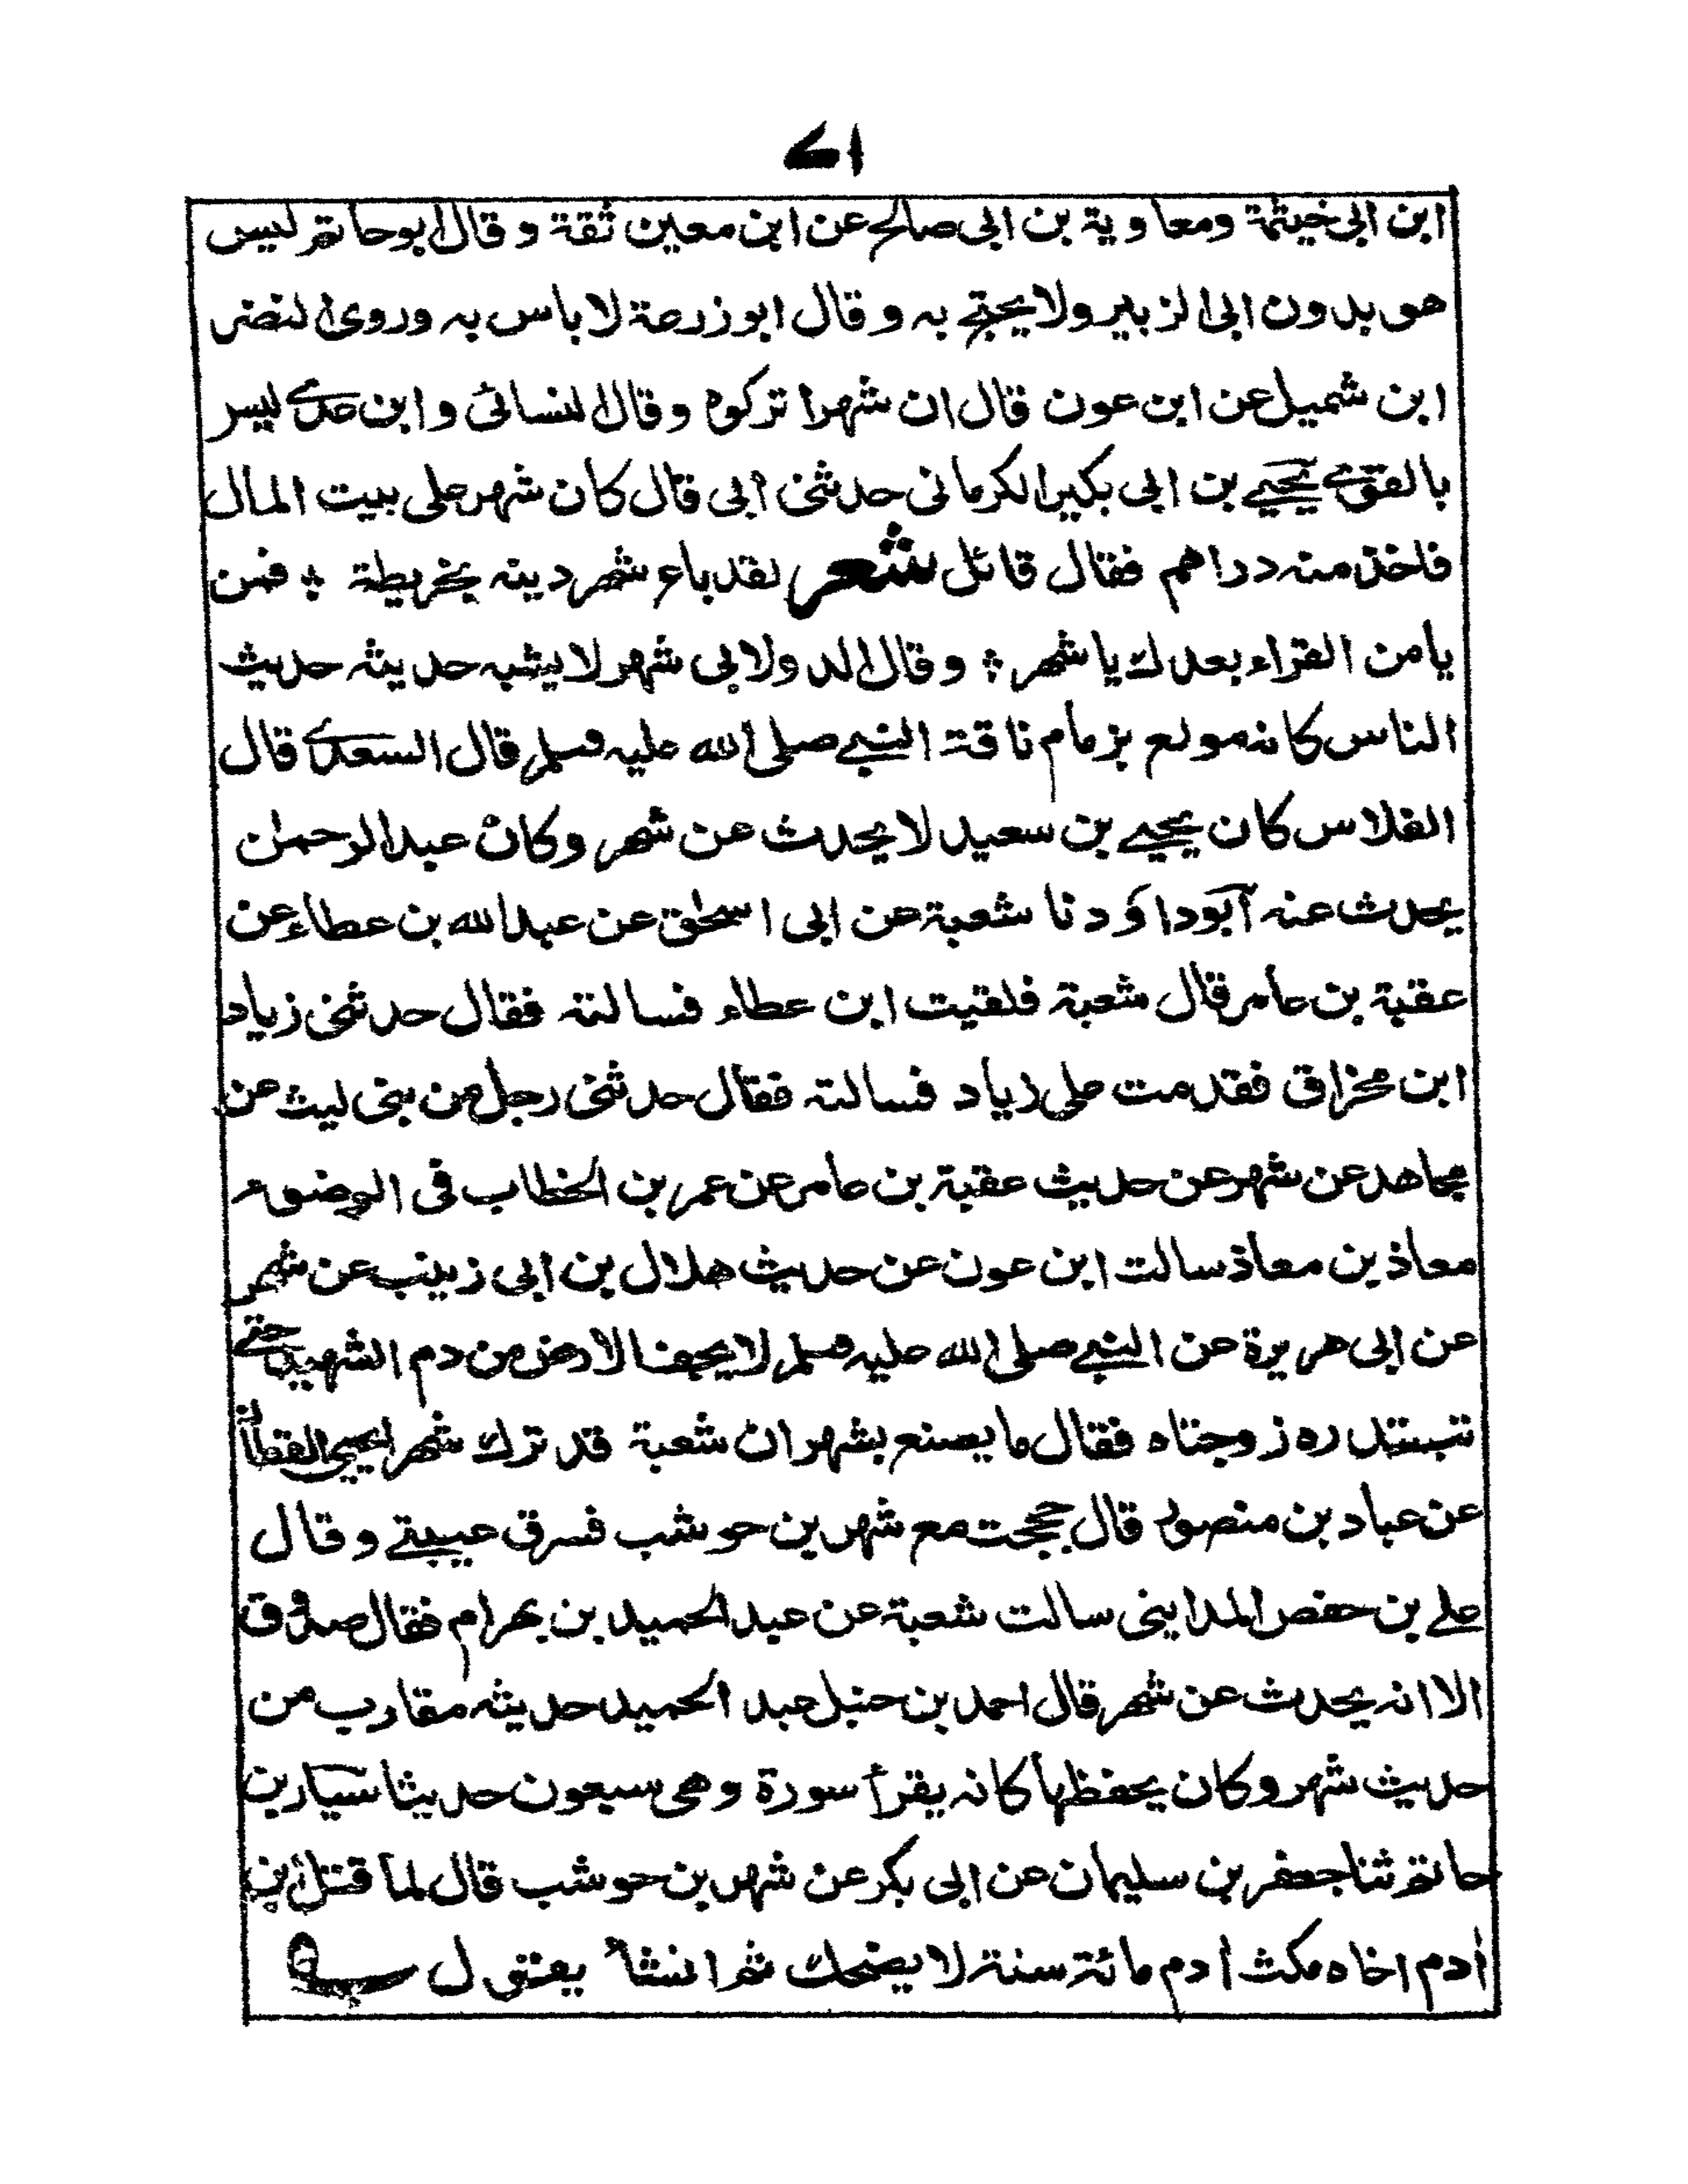 ٧١
ابن ابى خيثمة ومعاوية بن ابى صالح عن ابن معين ثقة وقال ابو حاتم ليس
هو بدون ابى الزبير ولا يحتج به وقال ابو زرعة لا باس به وروى النضر
ابن شميل عن ابن عون قال ان شهرا تركوه وقال النسائى وابن عدى ليس
بالقوى يحيى بن ابى بكير الكرمانى حدثنى ابى قال كان شهر على بيت المال
فاخذ منه دراهم فقال قائل شعر لقد باع شهر دينه بخريطة ؞ فمن
يامن القراء بعدك يا شهر ؞ وقال الدولابى شهر لا يشبه حديثه حديث
الناس كانه مولع بزمام ناقة النبى صلى الله عليه وسلم قال السعدى قال
الفلاس كان يحيى بن سعيد لا يحدث عن شهر وكان عبد الرحمٰن
يحدث عنه ابو داؤد نا شعبة عن ابى اسحٰق عن عبد الله بن عطاء عن
عقبة بن عامر قال شعبة فلقيت ابن عطاء فسالته فقال حدثنى زياد
ابن مخراق فقدمت على زياد فسالته فقال حدثنى رجل من بنى ليث عن
مجاهد عن شهر عن حديث عقبة بن عامر عن عمر بن الخطاب فى الوضوء
معاذ بن معاذ سالت ابن عون عن حديث هلال بن ابى زينب عن شهر
عن ابى هريرة عن النبى صلى الله عليه وسلم لا يجف الارض من دم الشهيد حتى
تبتدره زوجتاه فقال ما يصنع بشهر ان شعبة قد ترك شهرا يحيى القطان
عن عباد بن منصور قال حججت مع شهر بن حوشب فسرق عيبتى وقال
على بن حفص المداينى سالت شعبة عن عبد الحميد بن بهرام فقال صدوق
الا انه يحدث عن شهر قال احمد بن حنبل عبد الحميد حديثه مقارب من
حديث شهر وكان يحفظها كانه يقرأ سورة وهى سبعون حديثا سيار بن
حاتم ثنا جعفر بن سليمان عن ابى بكر عن شهر بن حوشب قال لما قتل ابن
اٰدم اخاه مكث اٰدم مائة سنة لا يضحك ثم انشأ يقول